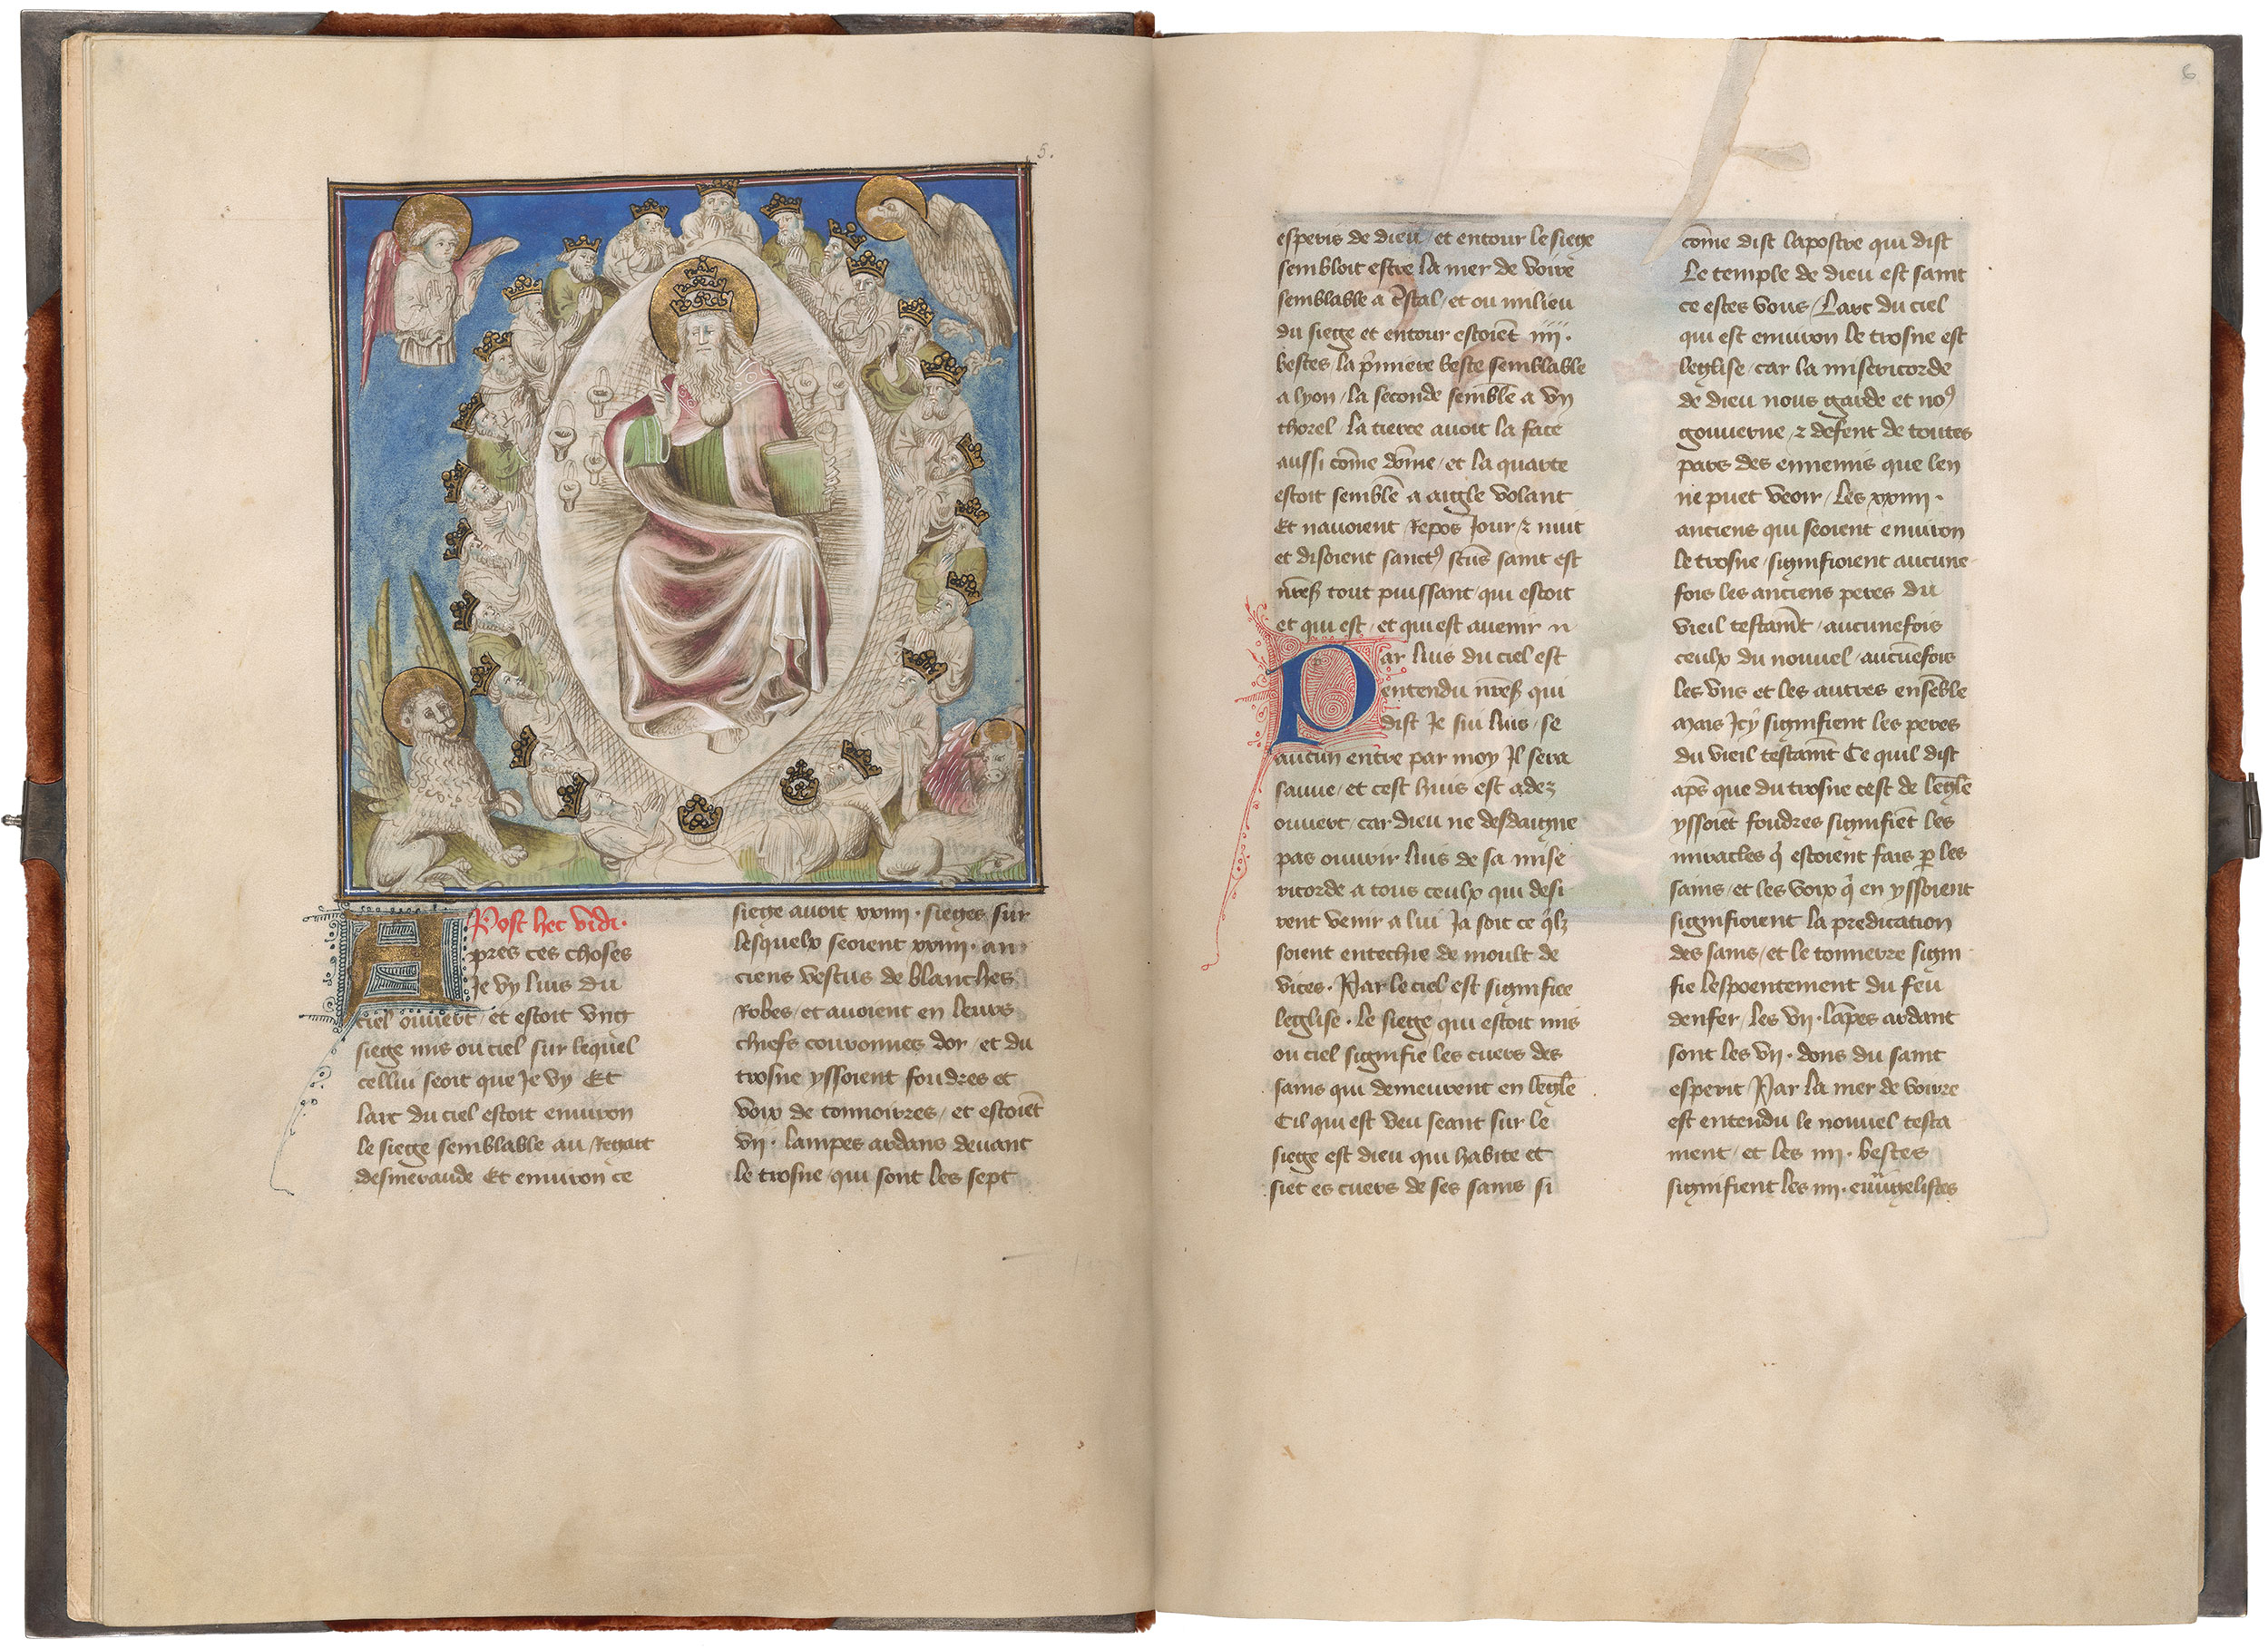 5.
Post hec vidi.
Apres ces choses
Je vy luis du
ciel ouuert / et estoit vng
siege mis ou ciel sur lequel
cellui seoit que Je vy Et
larc du ciel estoit enuiron
le siege semblable au Regart
desmeraude Et enuiron ce
siege auoit xxiiii . sieges / sur
lesquelx seoient xxiiii . an
ciens vestus de blanches
Robes / et auoient en leurs
chiefs couronnes dor / et du
trosne yssoient foudres et
voix de tonnoirres / et estoiẽt
vii . lampes ardans deuant
le trosne qui sont les sept
6
esperis de dieu / et entour le siege
sembloit estre la mer de voire
semblable a c̾stal / et ou milieu
du siege et entour estoiẽt iiii .
bestes / la p̾miere beste semblable
a lyon / la seconde semble a vn
thorel / la tierce auoit la face
aussi cõme dõme / et la quarte
estoit semblẽ a aigle volant
Et nauoient Repos Jour ⁊ nuit
et disoient sanctꝰ scũs saint est
tout puissant / qui estoit
et qui est / et qui est auenir
Par luis du ciel est
entendu qui
dist Je sui luis / se
aucun entre par moy Il sera
sauue / et cest huis est adez
ouuert / car dieu ne desdaigne
pas ouurir luis de sa mise
ricorde a tous ceulx qui desi
rent venir a lui Ja soit ce q̾lz
soient entechie de moult de
vices . Par le ciel est signifiee
leglise . le siege qui estoit mis
ou ciel signifie les cuers des
sains qui demeurent en leg̾le
Cil qui est veu seant sur le
siege est dieu qui habite et
siet es cuers de ses sains si
cõme dist lapostre qui dist
Le temple de dieu est saint
ce estes vous / Larc du ciel
qui est enuiron le trosne est
leglise / car la misericorde
de dieu nous garde et noꝰ
gouuerne / ⁊ defent de toutes
pars des ennemis que len
ne puet veoir / les xxiiii .
anciens qui seoient enuiron
le trosne / signifioient aucune
fois les anciens peres du
vieil testamt̃ / aucunefois
ceulx du nouuel / aucũefois
les vns et les autres ensẽble
Mais Icy signifient les peres
du vieil testamt̃ Ce quil dist
apẽs que du trosne cest de leg̾le
yssoiẽt foudres signifiẽt les
miracles q̾ estoient fais ꝑ les
sains / et les voix q̾ en yssoient
signifioient la predication
des sains / et le tonnerre signi
fie lespoentement du feu
denfer / les vii . lãpes ardant
sont les vii . dons du saint
esperit Par la mer de voirre
est entendu le nouuel testa
ment / et les iiii . bestes
signifient les iiii . euũgelistes